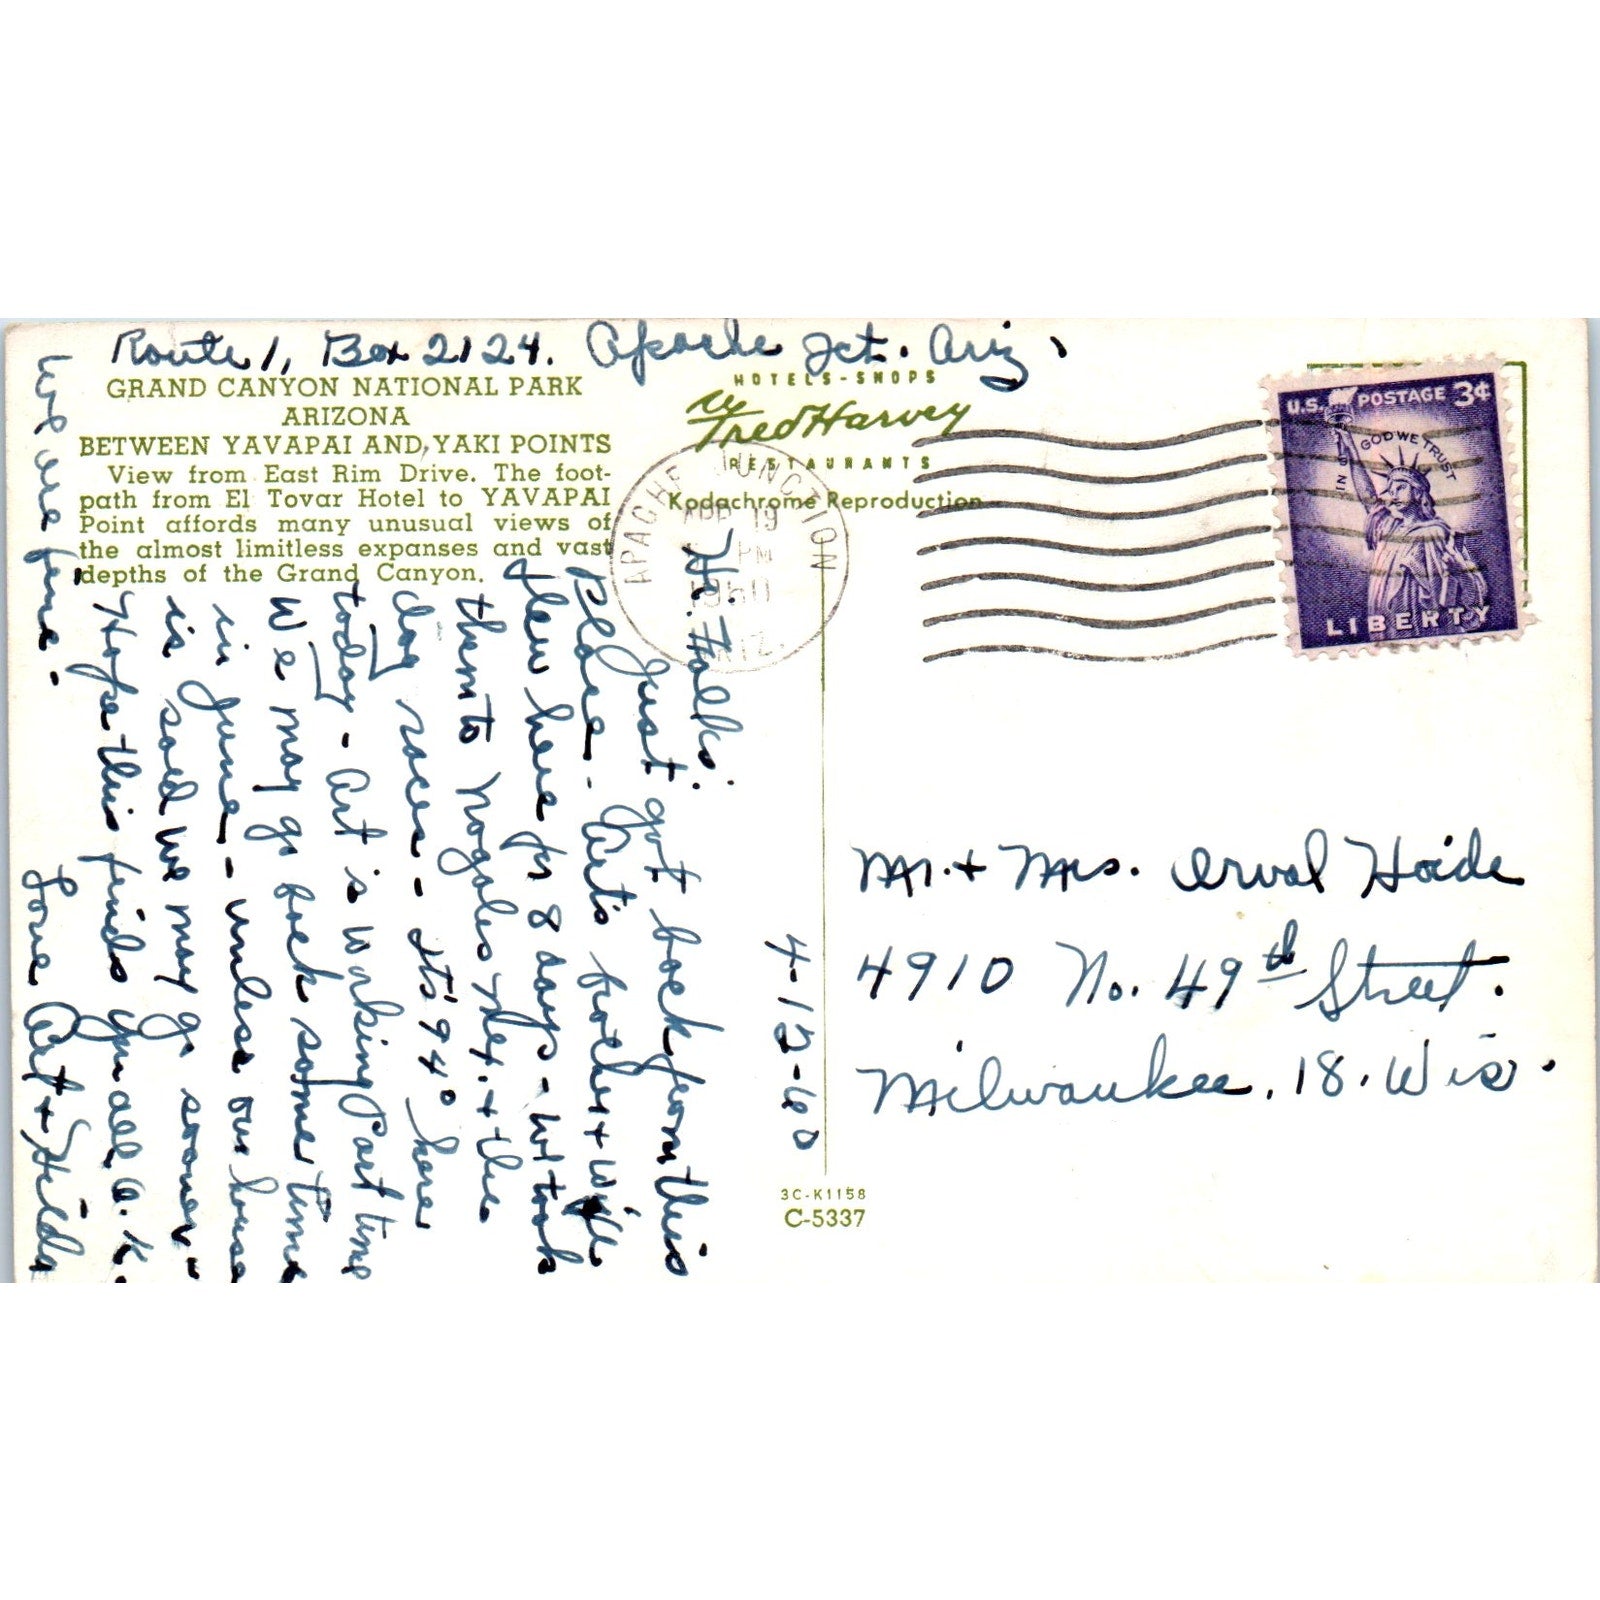 Route 1, Box 2124. Apache Jct. Ariz.
GRAND CANYON NATIONAL PARK
ARIZONA
BETWEEN YAVAPAI AND YAKI POINTS
View from East Rim Drive. The foot-
path from El Tovar Hotel to YAVAPAI
Point affords many unusual views of
the almost limitless expenses and vast
depths of the Grand Canyon.
HOTELS-SHOPS
Fred Harvey
RESTAURANTS
Kodachrome Reproduction
APACHE JUNCTION
APR 19
PM
1960
ARIZ.
U.S. POSTAGE 3¢
IN GOD WE TRUST
LIBERTY
Hi. Folks:
Just got back from this
place - Art's brother + wife
flew here for 8 days - We took
them to Nogales Mex. + the
dog races - It's 94° here
today - Art is working Part time
We may go back some time
in June - unless our house
is sold we may go sooner -
Hope this finds you all O.K.
We are fine -
Love Art + Hilda
4-15-60
Mr. + Mrs. Orval Hoide
4910 No. 49th Street.
Milwaukee, 18. Wis.
3C-K1158
C-5337